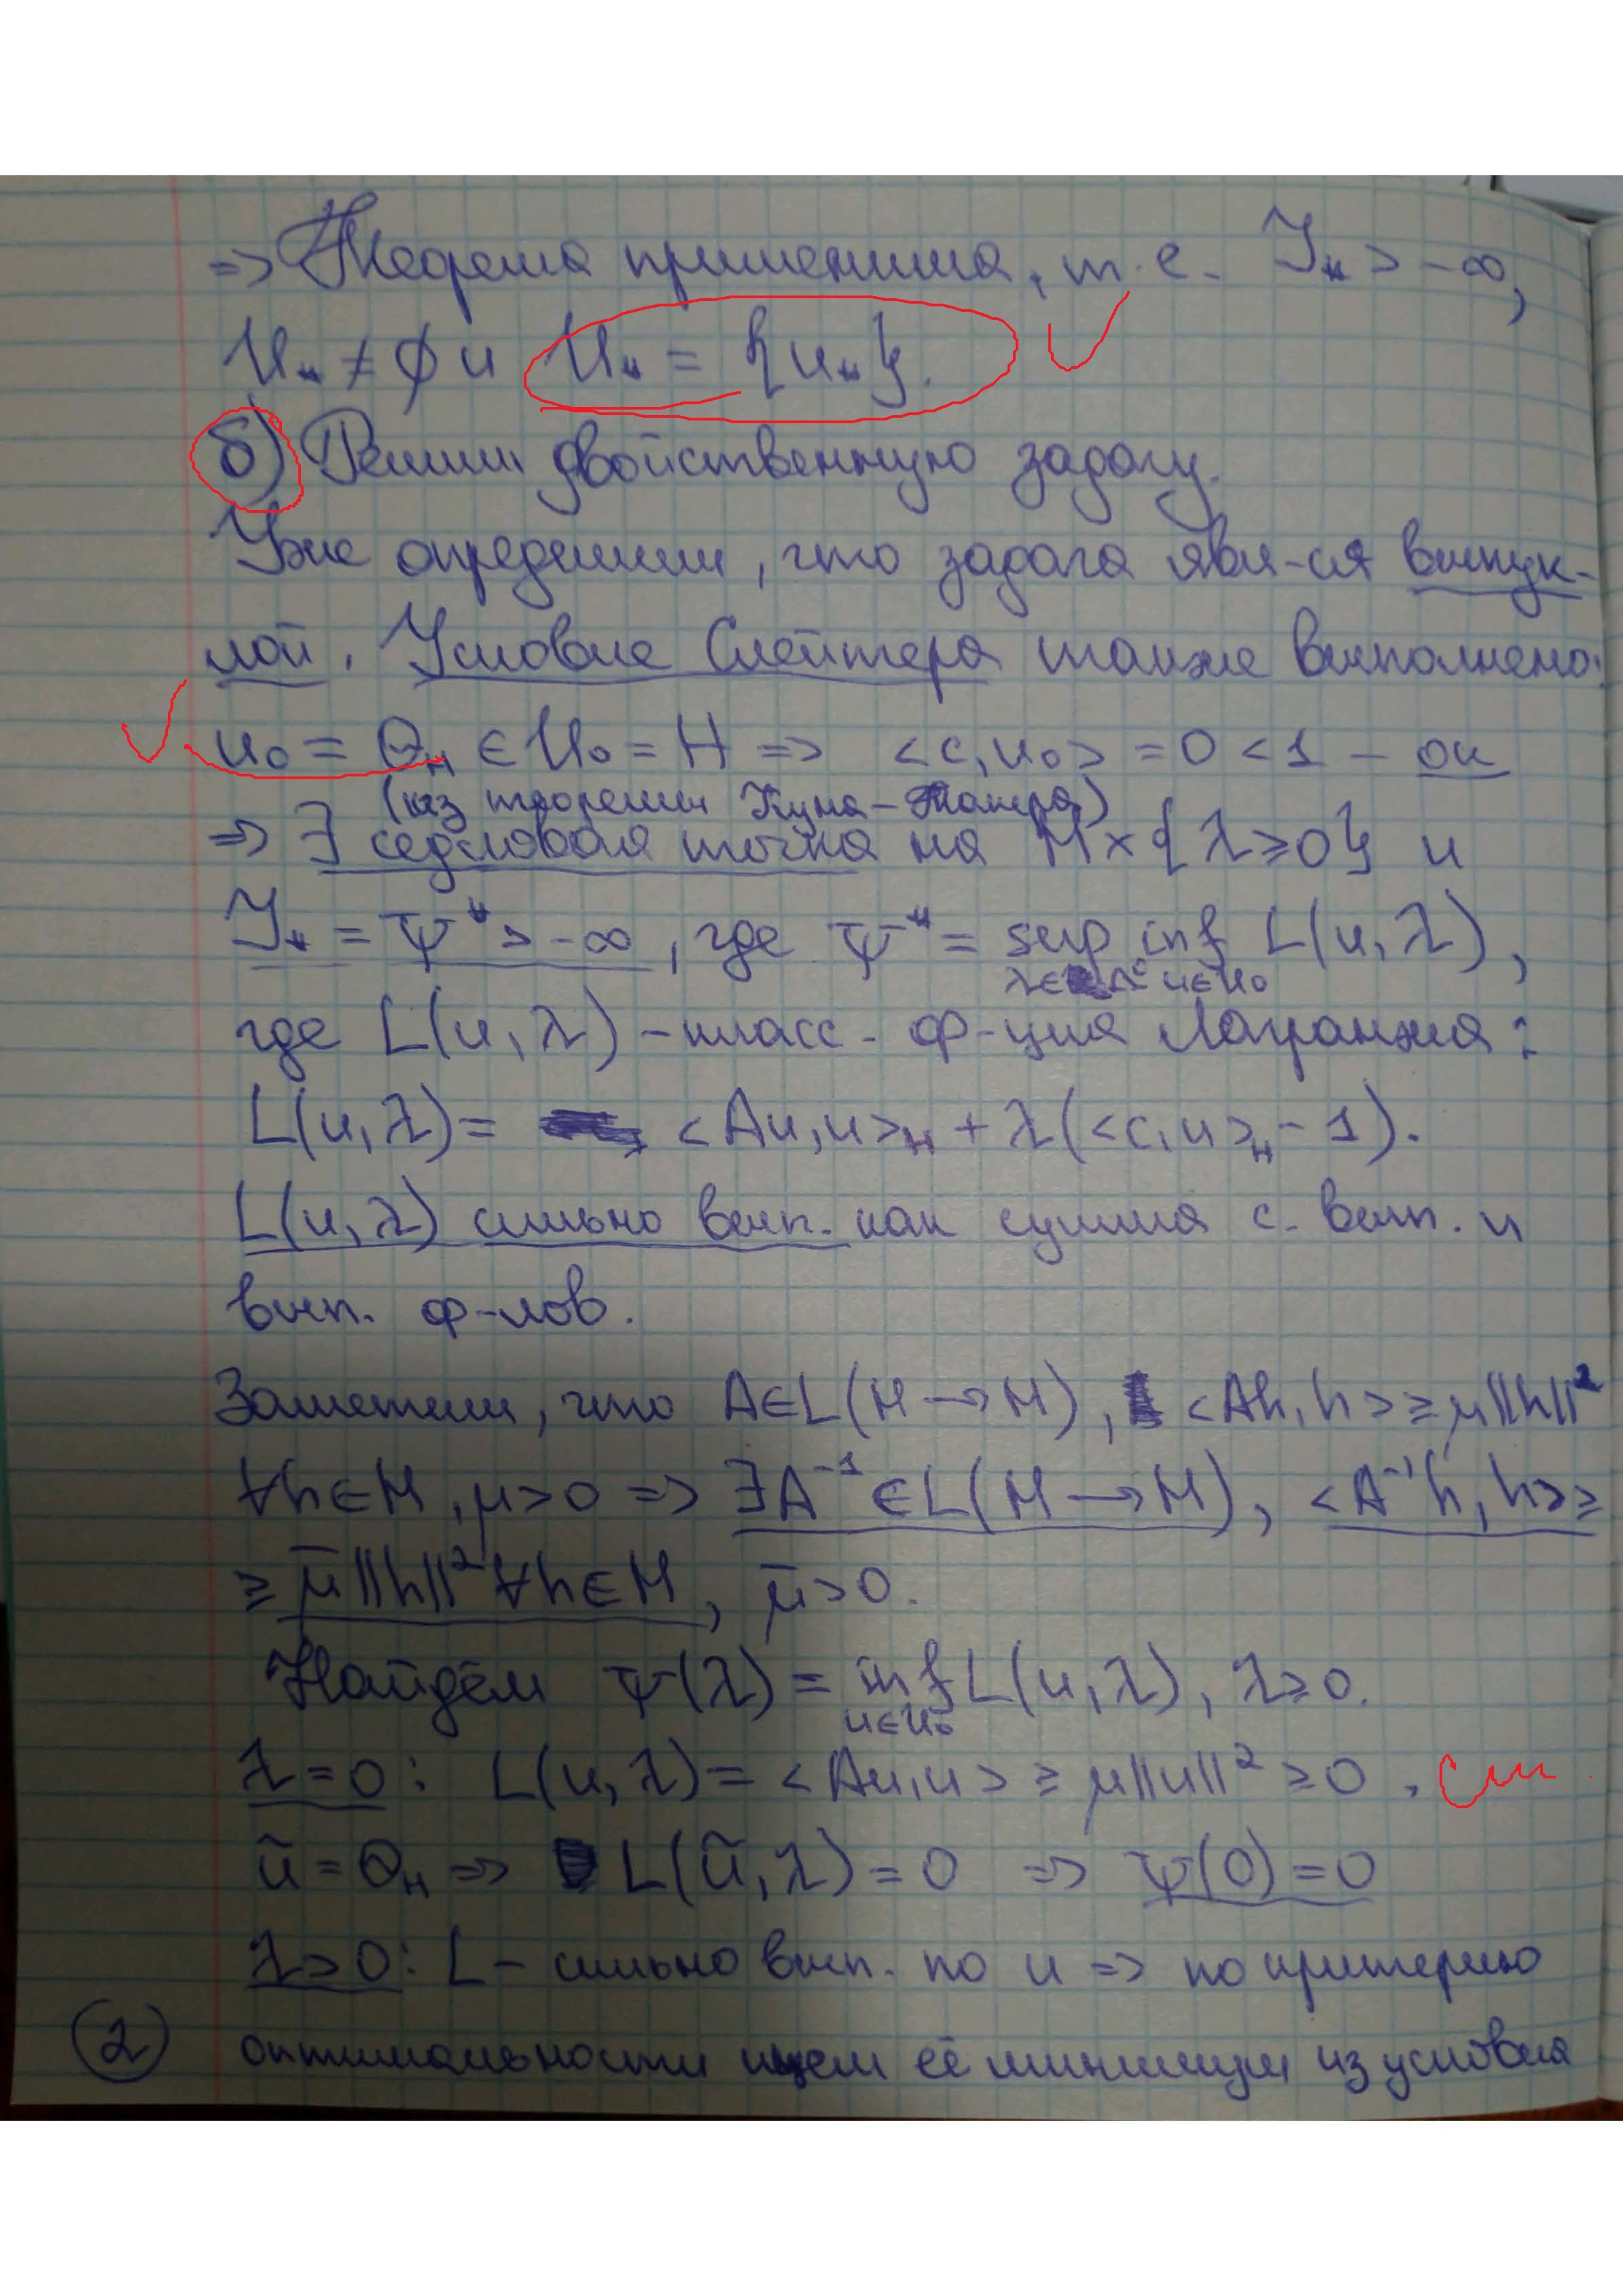 => Теорема применима, т.е. J* > -∞,
U* ≠ ∅ и U* = {u*}.
б) Решим двойственную задачу.
Уже определили, что задача явл-ся выпук-
лой. Условие Слейтера также выполнено:
u₀ = Θ_H ∈ U₀ = H => <c, u₀> = 0 < 1 – ок
(из теоремы Куна-Таккера)
=> ∃ седловая точка на H × {λ ≥ 0} и
J* = ψ* > -∞, где ψ* = sup inf L(u, λ),
λ∈Λ u∈U₀
где L(u, λ) – класс. ф-ция Лагранжа:
L(u, λ) = <Au, u>_H + λ(<c, u>_H - 1).
L(u, λ) сильно вып. как сумма с. вып. и
вып. ф-лов.
Заметим, что A∈L(H→H), <Ah, h> ≥ μ||h||²
∀h∈H, μ>0 => ∃A⁻¹∈L(H→H), <A⁻¹h, h> ≥
≥ μ̄||h||² ∀h∈H, μ̄>0.
Найдём ψ(λ) = inf L(u, λ), λ≥0.
u∈U₀
λ=0: L(u, λ) = <Au, u> ≥ μ||u||² ≥ 0,
ũ = Θ_H => L(ũ, λ) = 0 => ψ(0) = 0
λ>0: L – сильно вып. по u => по критерию
② оптимальности ищем её минимум из условия